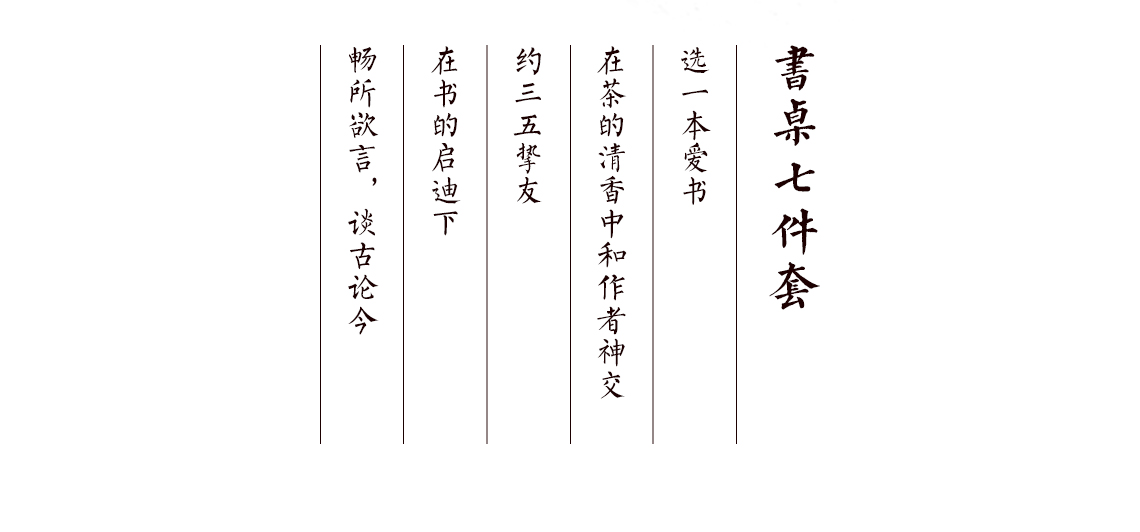 書桌七件套
选一本爱书
在茶的清香中和作者神交
约三五挚友
在书的启迪下
畅所欲言，谈古论今